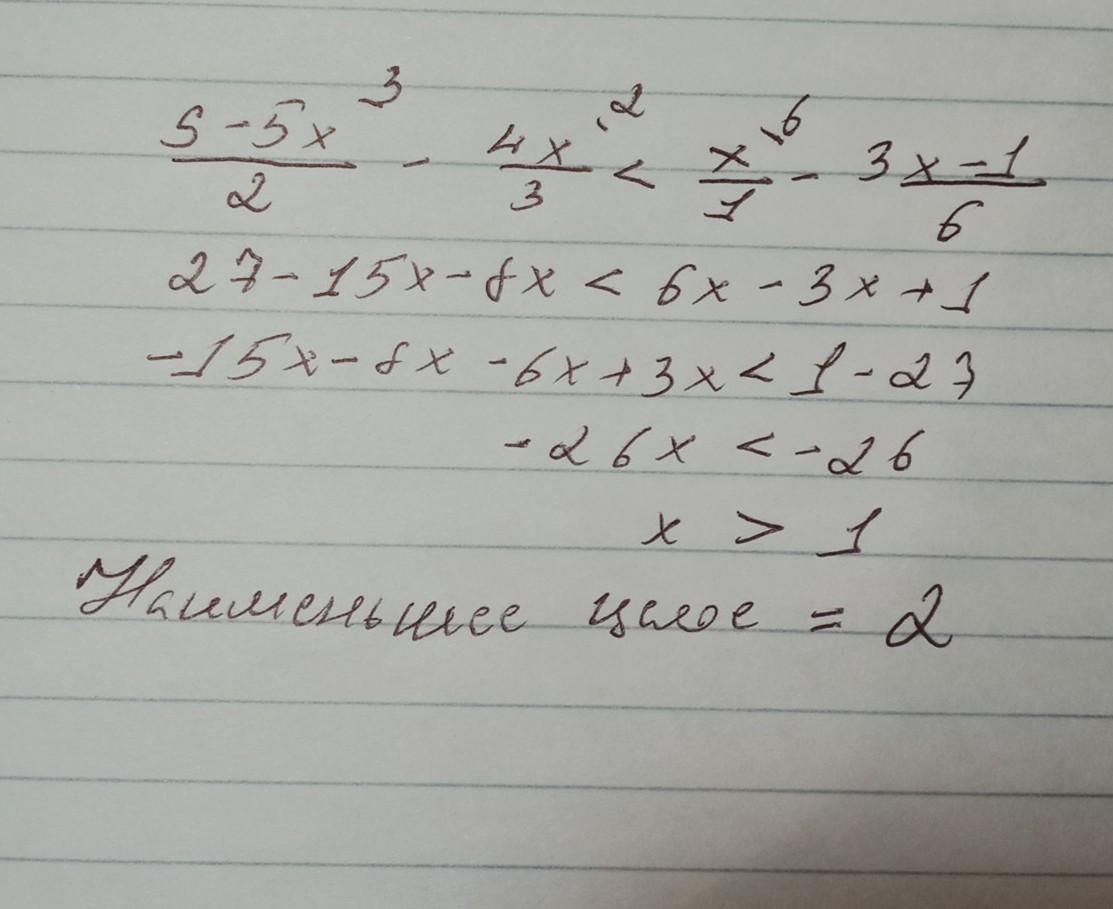 5-5x/2 ³ - 4x/3 ·2 < x/1 ·6 - 3x-1/6
27-15x-8x < 6x-3x+1
-15x-8x-6x+3x<1-27
-26x <-26
x > 1
Наименьшее целое = 2